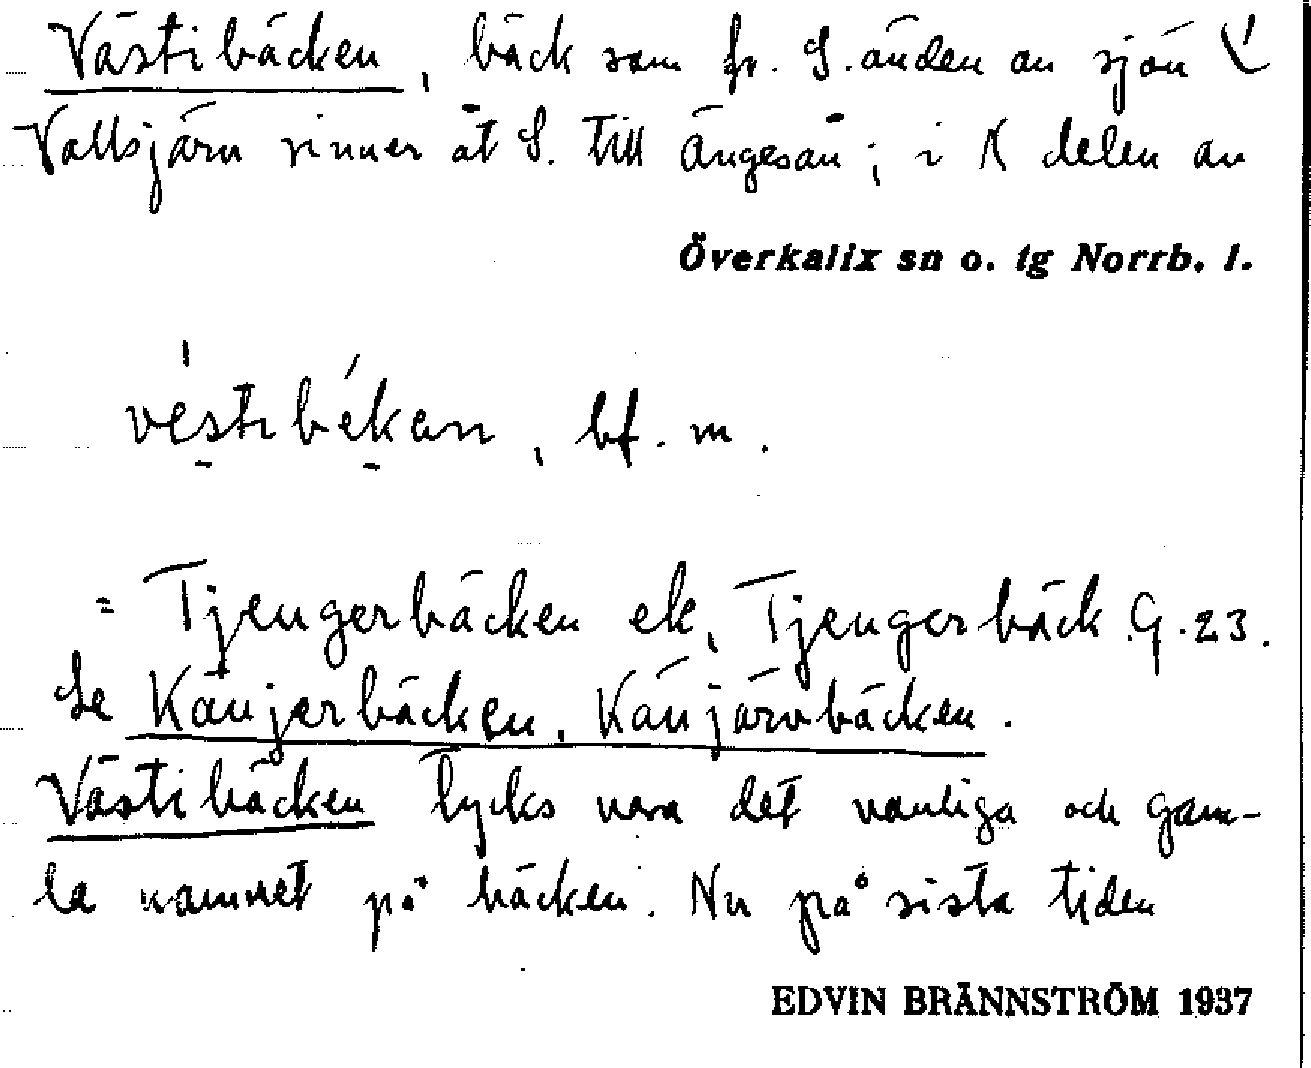 Västibäcken, bäck som fr. S.änden av sjön
Vallsjärv rinner åt S. till Ängesån; i N delen av
Överkalix sn o. tg Norrb. l.
vèstıbèkan, bf. m.
= Tjengerbäcken ek, Tjengerbäck G.23.
Se Känjerbäcken, Känjärvbäcken.
Västibäcken tycks vara det vanliga och gam-
la namnet på bäcken. Nu på sista tiden
EDVIN BRÄNNSTRÖM 1937